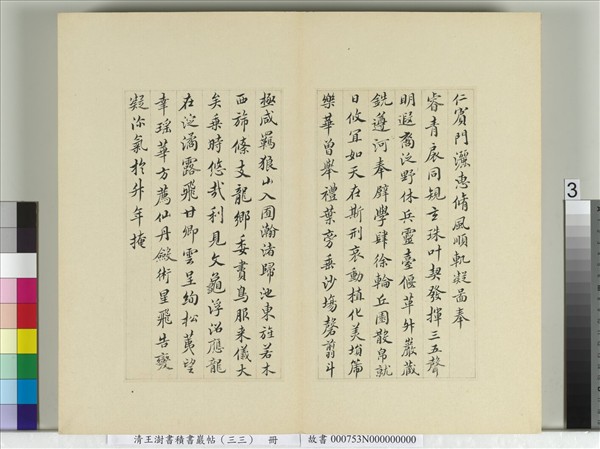 仁賓門灑惠脩風順軌凝圖奉
睿青扆同規玄珠叶契發揮三五聲
明遐裔泛野休兵靈臺偃革舛嚴藏
銑遵河奉辟學肆徐輪丘園散帛就
日攸宜如天在斯刑哀動植化美塤篪
樂華曾舉禮葉旁垂沙場罄翦斗
極咸羈狼山入囿瀚渚歸池東旌若木
西旆條支龍鄉委賮鳥服來儀大
矣乘時悠哉利見文龜浮沼應龍
在淀滴露飛甘卿雲呈絢松荑望
幸瑤華方薦仙丹斂術星飛告變
凝沵氣於升年掩
清王澍書積書巖帖（三三） 冊
故書 000753N000000000
3